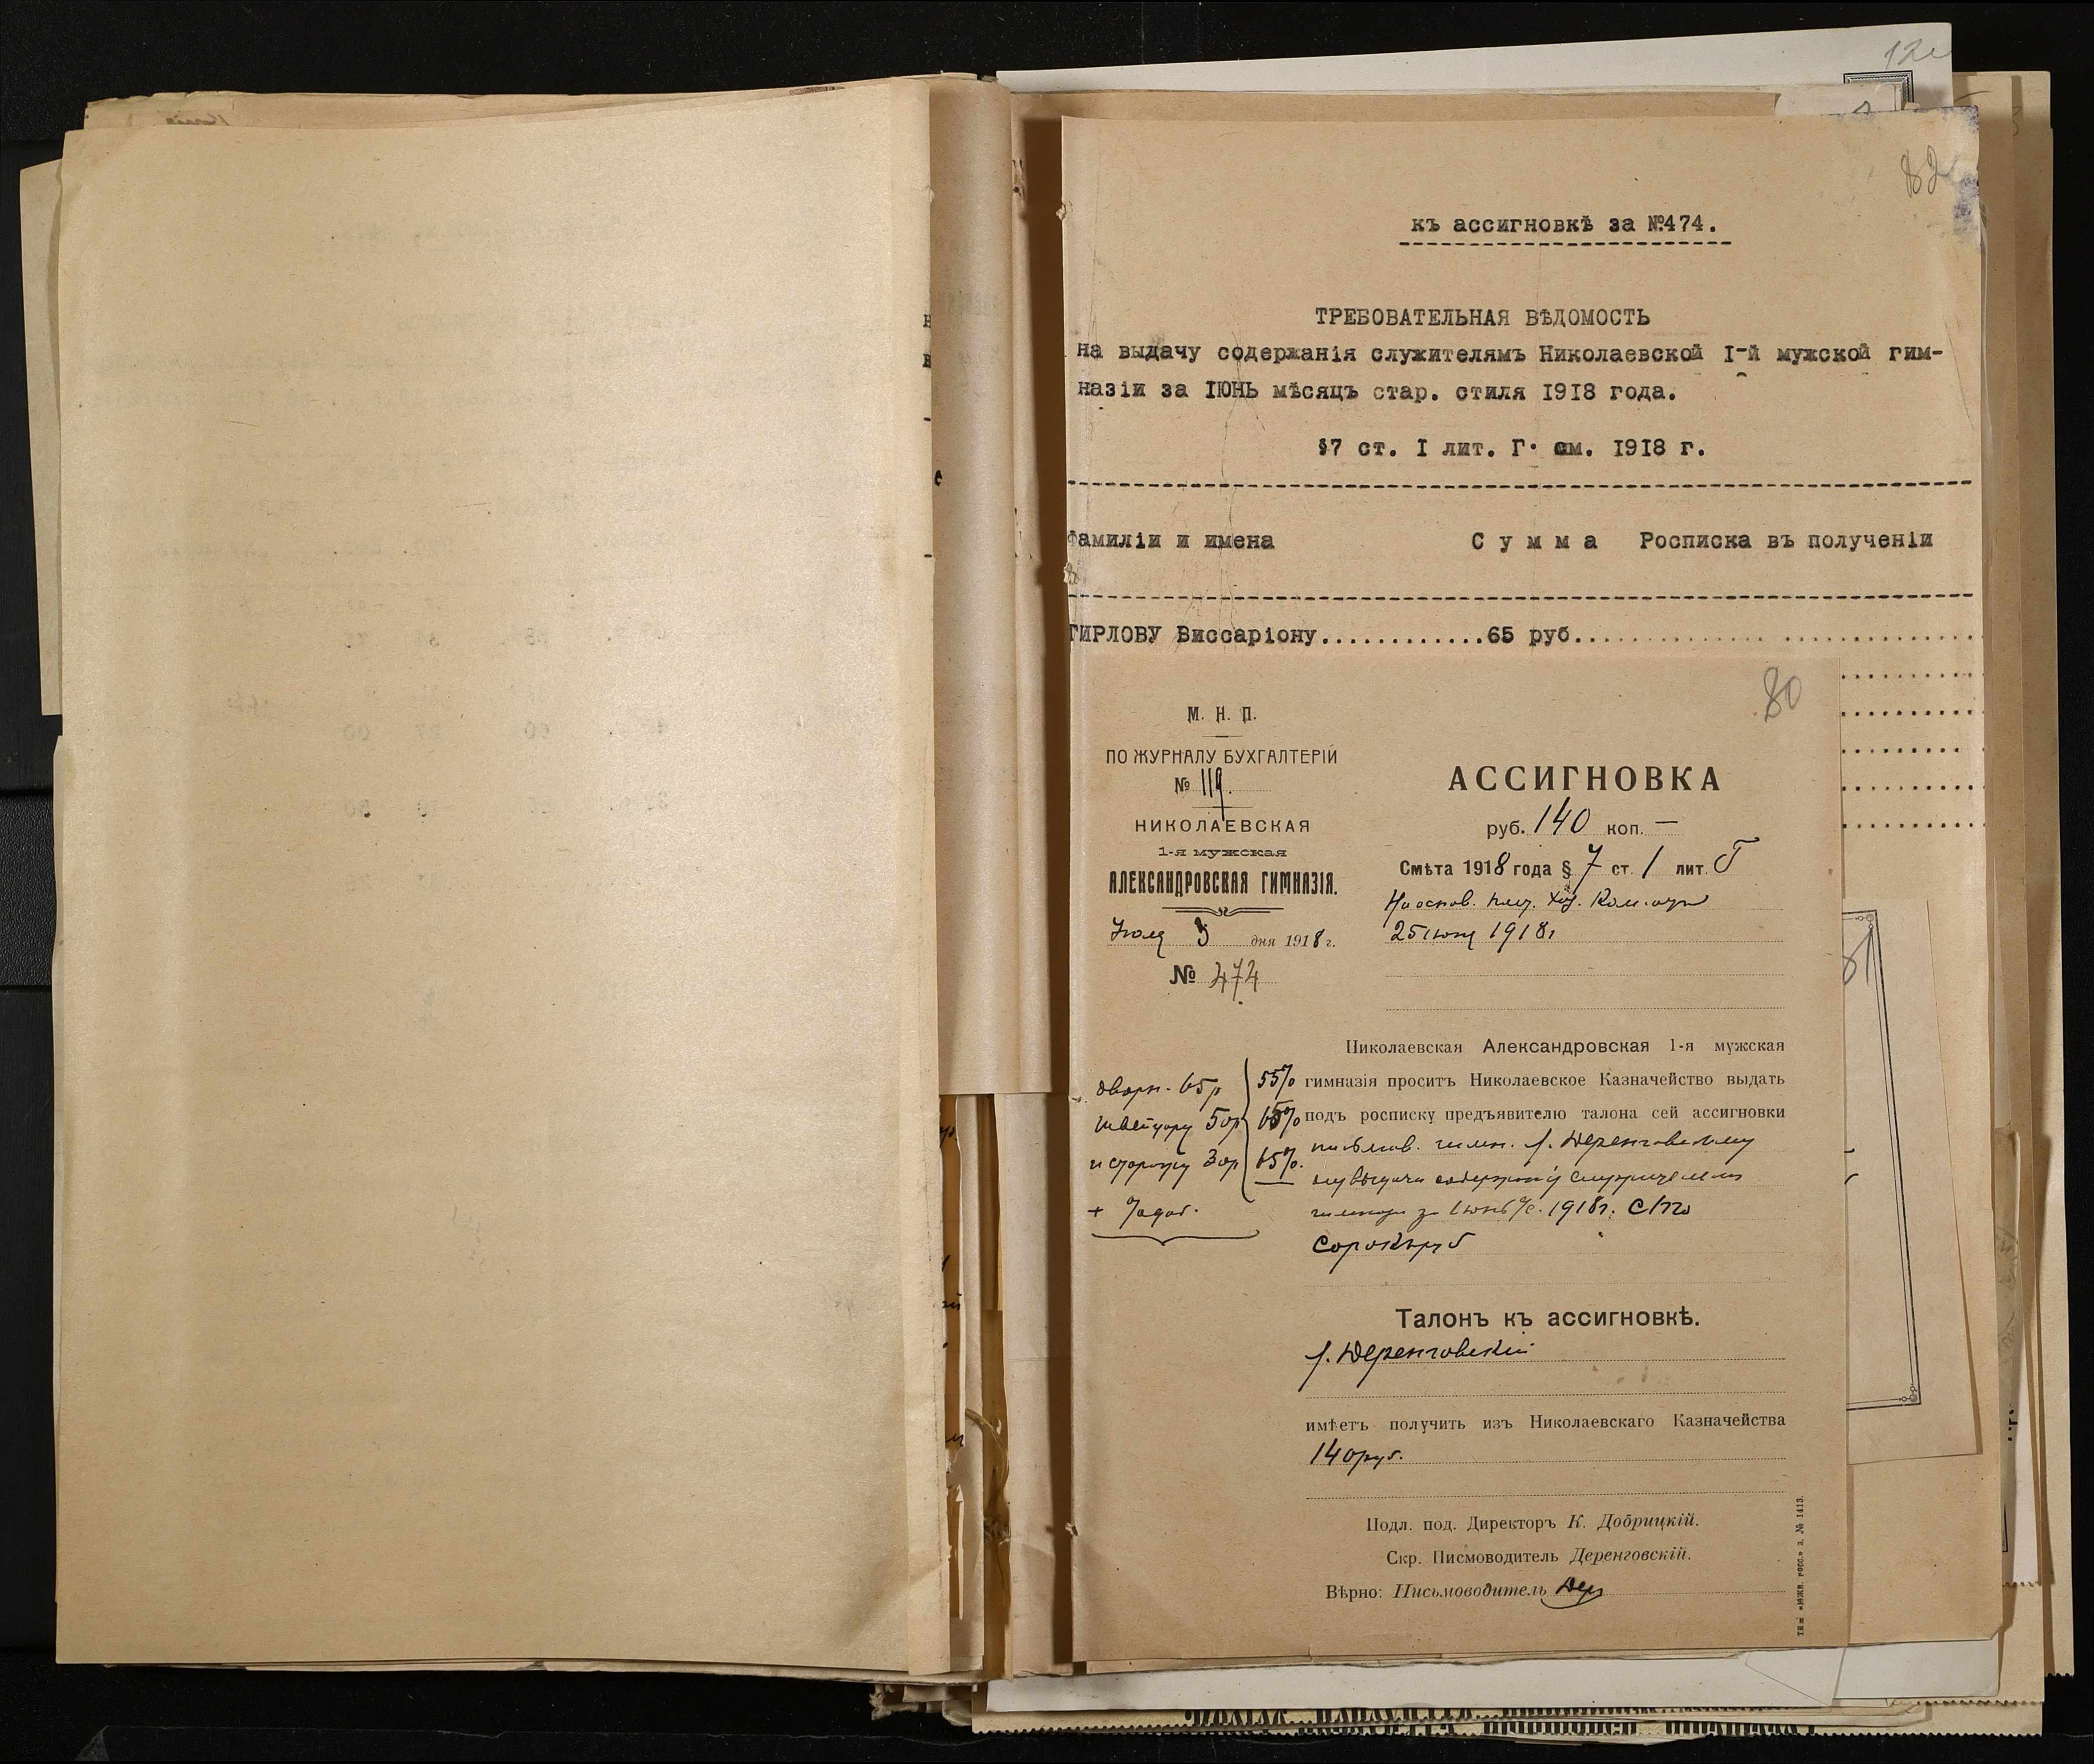 82
къ ассигновкѣ за №474.
ТРЕБОВАТЕЛЬНАЯ ВѢДОМОСТЬ
на выдачу содержанія служителямъ Николаевской I-й мужской гим-
назіи за IЮНЬ мѣсяцъ стар. стиля 1918 года.
§7 ст. I лит. Г. см. 1918 г.
Фамиліи и имена Сумма Росписка въ полученіи
ГИРЛОВУ Виссаріону............65 руб.
80
М. Н. П.
ПО ЖУРНАЛУ БУХГАЛТЕРІЙ
№ 119.
НИКОЛАЕВСКАЯ
1-я мужская
АЛЕКСАНДРОВСКАЯ ГИМНАЗІЯ.
3 дня 1918 г.
№ 474
АССИГНОВКА
руб. 140 коп. —
Смѣта 1918 года § 7 ст. 1 лит. Г
25 1918 г
дворн. 65 р 55%
швейцару 50р 65%
и сторожу 30р 65%
Николаевская Александровская 1-я мужская
гимназія проситъ Николаевское Казначейство выдать
подъ росписку предъявителю талона сей ассигновки
письмов. гимн. Деренговскому
1918г. Сто
Сорокъ руб
Талонъ къ ассигновкѣ.
Деренговскій
имѣетъ получить изъ Николаевскаго Казначейства
140 руб.
Подл. под. Директоръ К. Добрицкій.
Скр. Писмоводитель Деренговскій.
Вѣрно: Письмоводитель Дер
81